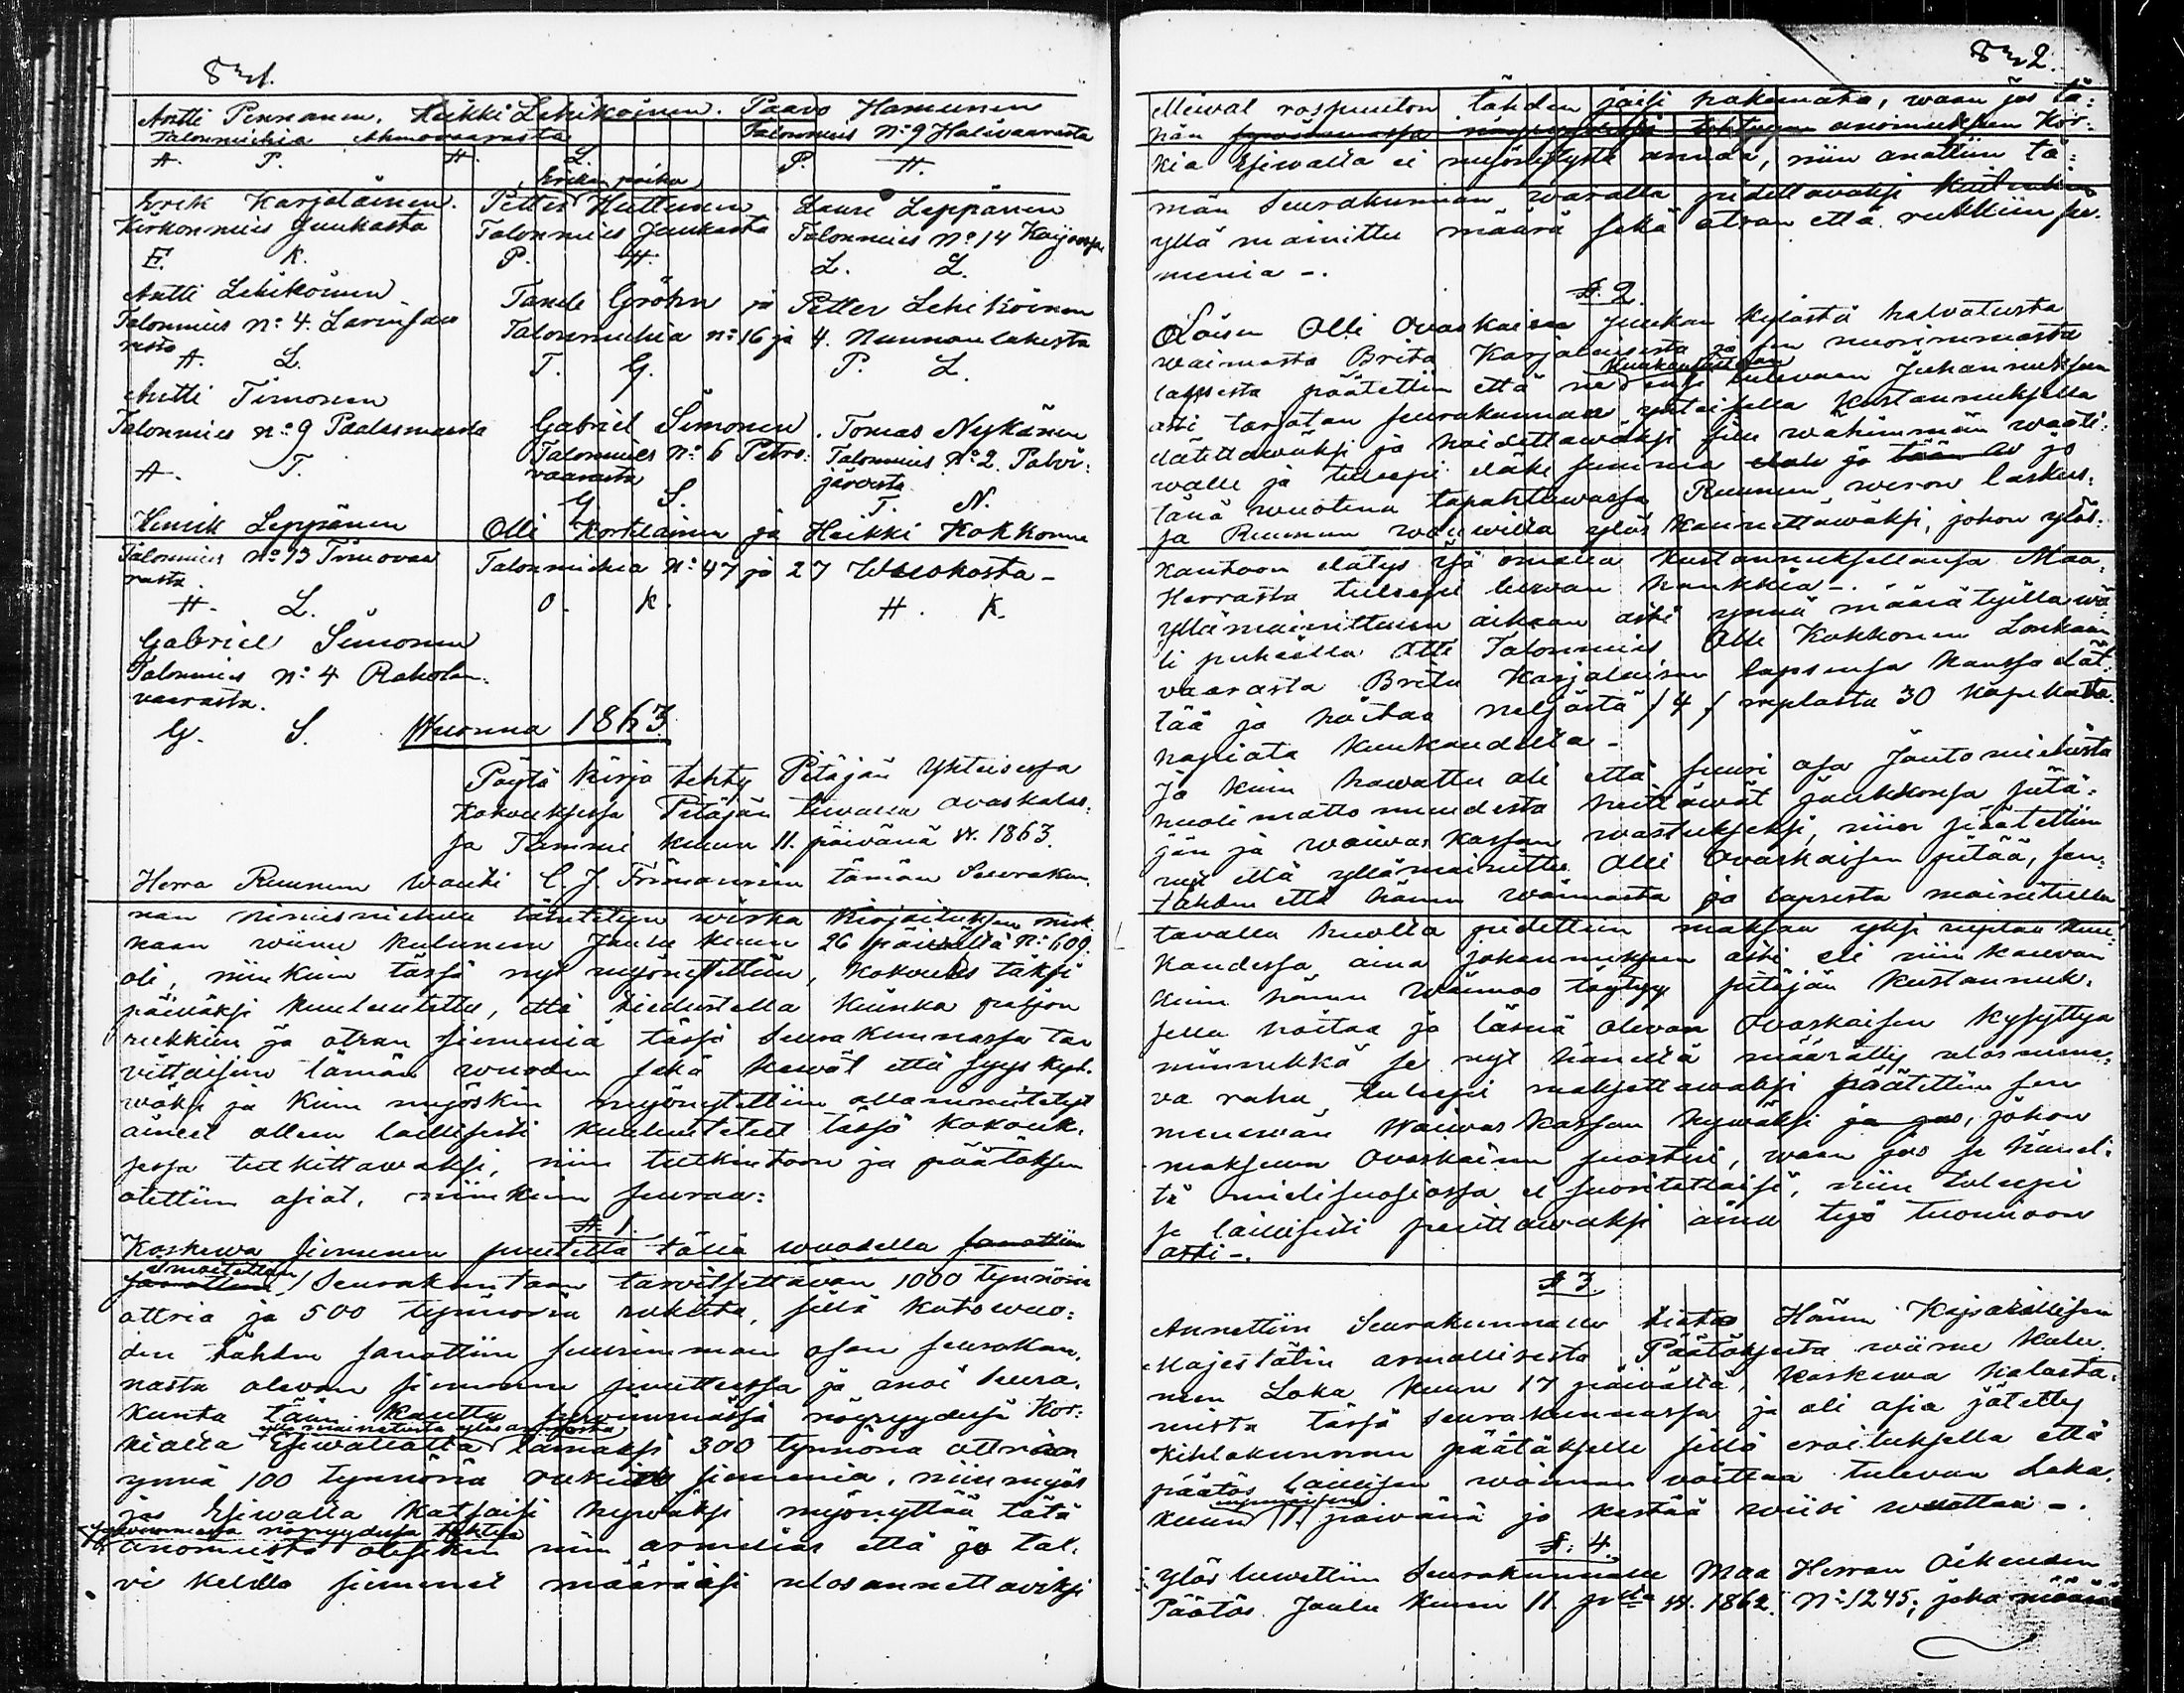 Antti Pennanen. Heikki Lehikoinen. Paavo Hamunen
Talonmiehiä Ahmovaarasta Talonmies N:o 9 Halivaarasta
A. P. H. L. P. H.
Erikin poika
Erik Karjalainen. Petter Huttunen Lauri Leppänen
Kirkonmies Juukasta Talonmies Juukasta Talonmies N:o 14
E. K. P. H. L. L.
Antti Lehikoinen Taneli Gröhn ja Petter Lehikoinen
Talonmies N:o 4. Larinsaa Talonmiehiä N:o 16 ja 4. Nunnanlahesta
resta
A. L. T. G. P. L.
Antti Timonen
Talonmies N:o 9 Paalasmaalta Gabriel Simonen Tomas Nykänen
A. T. Talonmies N:o 6 Petro: Talonmies N:o 2. Polvi:
vaarasta järvestä
G S. T. N.
Henrik Leppänen Olli Kortelainen ja Heikki Kokkonen
Talonmies N:o 13 Timovaa Talonmiehiä N:o 47 ja 27 Wuokosta -
rasta.
H. L. O. K. H. K.
Gabriel Simonen
Talonmies N:o 4 Raholan:
vaarasta.
G. S. Wuonna 1863
Pöytä kirja tehty Pitäjän Yhteisessä
Kokouksessa Pitäjän tuvalla
sa Tammi kuun 11. päivänä v. 1863.
Herra Ruunun Wouti C. J. Frimannin tämän Seurakun.
nan nimismiehelle lähetetyn wirka kirjoituksen muk
kaan wiime kuluneen Joulu kuun 26 päivältä N:o 609.
oli, niinkuin tässä nyt myönnettiin, kokous täksi
päiväksi kuulutettu, että tiedustella kuinka paljon
rukkiin ja otran siemeniä tässä Seurakunnassa tar
vittaisiin tämän wuoden sekä kewät että syys kyl.
wöksi ja kuin myöskin myönnettiin allamainitetyt
aineet olleen laillisesti kuulutetut tässä kokouk.
sessa tutkittawaksi, niin tutkintoon ja päätöksen
otettiin asiat, niinkuin seuraa:
§. 1.
Koskewa siemenen puutetta tällä wuodella sanottiin
ilmoitettiin
sanottiin Seurakuntaan tarvitsettavan 1000 tynnöriä
ottria ja 500 tynnöriä rukiita, sillä katowuo:
den tähden sanottiin suurimman osan seurakun.
nasta olevan siemenen puutteessa ja anoi Seura.
kunta täin kautta syvimmässä nöyryydessä Kor:
kialta Esiwallalta lainaksi 300 tynnöriä ottrian
ynnä 100 tynnöriä rukiita siemeniä, niin myös
jos Esiwalta katsoisi hywäksi myönyttää tätä
syvimmässä nöyryydessä tehtyä
anomusta olisikin niin armelias että jo tal.
vi kelillä siemenet määräisi ulosannettaviksi
Meiwal rospuuton tähden jäisi hakematta, waan jos tä:
hän anomukseen Kor:
kia Esiwalta ei myönnytystä annda, niin anottiin tä:
män Seurakunnan waralla pidettäväksi kuitenkin
yllä mainittu määrä sekä otran että rukkiin sie.
meniä -.
§. 2.
Loisen Olli Ovaskaisen Juukan kylästä halvatusta
waimosta Brita Karjalaisesta ja sen nuorimmasta
kuukauttain
lapsesta päätettiin että ne ensi tulewaan Juhannukseen
asti tarjotan seurakunnan yhteisellä kustannuksella
elätettäwäksi ja hoidettawaksi sille wähimmän waati:
walle ja tuleepi eläke summa jo
tänä wuotena tapahtuwassa Ruunun weron laskus:
sa Ruunun woudilta ylös kannettawaksi, johon ylös:
kantoon elätys omalla kustannuksellansa Maa.
Herrasta tuleepi luwan hankkia -.
yllämainittuun aikaan asti ynnä määrätyillä wä
li puheilla otti Talonmies Olli Kokkonen Lonkan
vaarasta Brita Karjalaisen lapsensa kanssa elät
tää ja hoitaa neljästä / 4 / ruplasta 30 kopekasta
hopiata kuukaudelta -
Ja kuin hawattu oli että suuri osa Joutomiehistä
huolimattomuudesta heittäwät joukkonsa pitä:
jän ja waiwas kassan wastukseksi, niin päätettiin
nyt että yllämainittu Olli Ovaskaisen pitää, sen:
tähden että hänen waimosta ja lapsesta mainitulla
tavalla huolta pidettiin maksaa yksi rupla kuu:
kaudessa aina johannukseen asti eli niin kauvan
kuin hänen waimoo täytyy pitäjän kustannuk.
sella hoitaa ja läsnä olevan Ovaskaisen kysyttyä
minnekkä se nyt häneltä määrätty ulosmene.
va raha tuleepi maksettawaksi päätettiin sen
menewän Waiwas kassan hywäksi, johon
maksuun Ovaskainen suostui, waan jos se hänel:
tä mielisuosiossa ei suoritettaisi, niin tuleepi
se laillisesti perittawaksi aina työ tuomioon
asti -.
§ 3.
Annettiin Seurakunnalle tietoo Hänen Keisarillisen
Majestätin armollisesta Päätöksestä wiime kulu
neen Loka kuun 17 päivältä, koskewa kalasta:
mista tässä seurakunnassa ja oli asia jätetty
Kihlakunnan päätökselle sillä eroituksella että
päätös laillisen woiman voittaa tulevan Loka.
kuun 1. päivänä ja kestää wiisi wuottaa -.
§: 4.
Ylös luwettiin Seurakunnalle Maa Herran Oikeuden
Päätös Joulu kuun 11. p:ltä v. 1862. N:o 1245; joka määrää